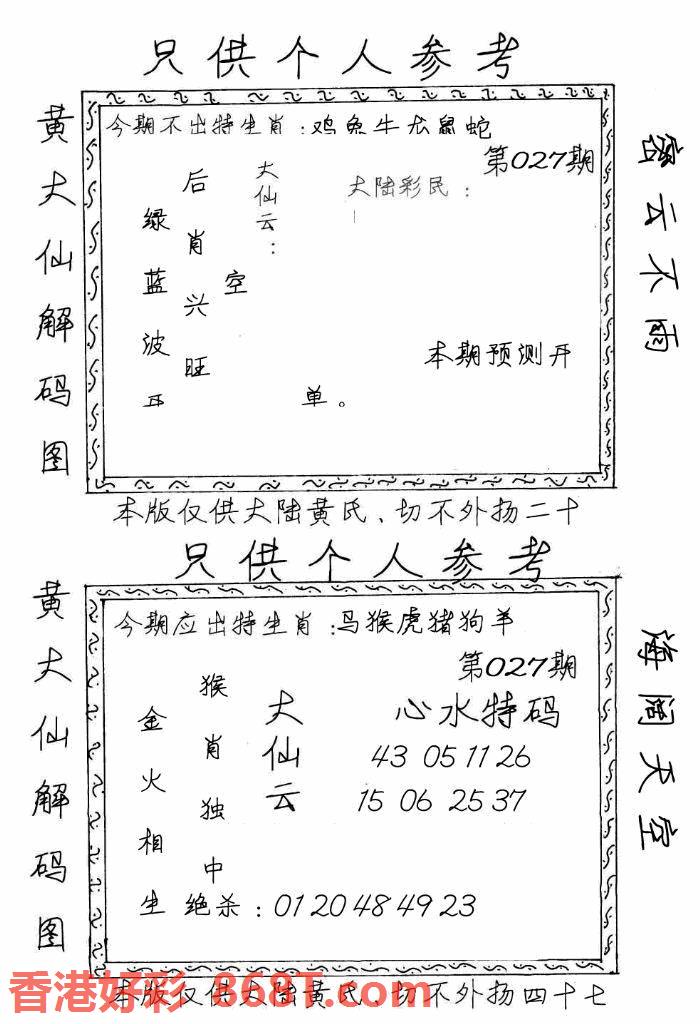 只供个人参考
黄大仙解码图
今期不出特生肖：鸡兔牛龙鼠蛇
第027期
大陆彩民：
大仙云：
后肖兴旺
绿蓝波开
空
单。
本期预测开
密云不雨
本版仅供大陆黄氏、切不外扬二十
只供个人参考
黄大仙解码图
今期应出特生肖：马猴虎猪狗羊
第027期
心水特码
43 05 11 26
15 06 25 37
大仙云
猴肖独中
金火相生
绝杀：01 20 48 49 23
海阔天空
本版仅供大陆黄氏、切不外扬四十七
香港好彩 868T.com